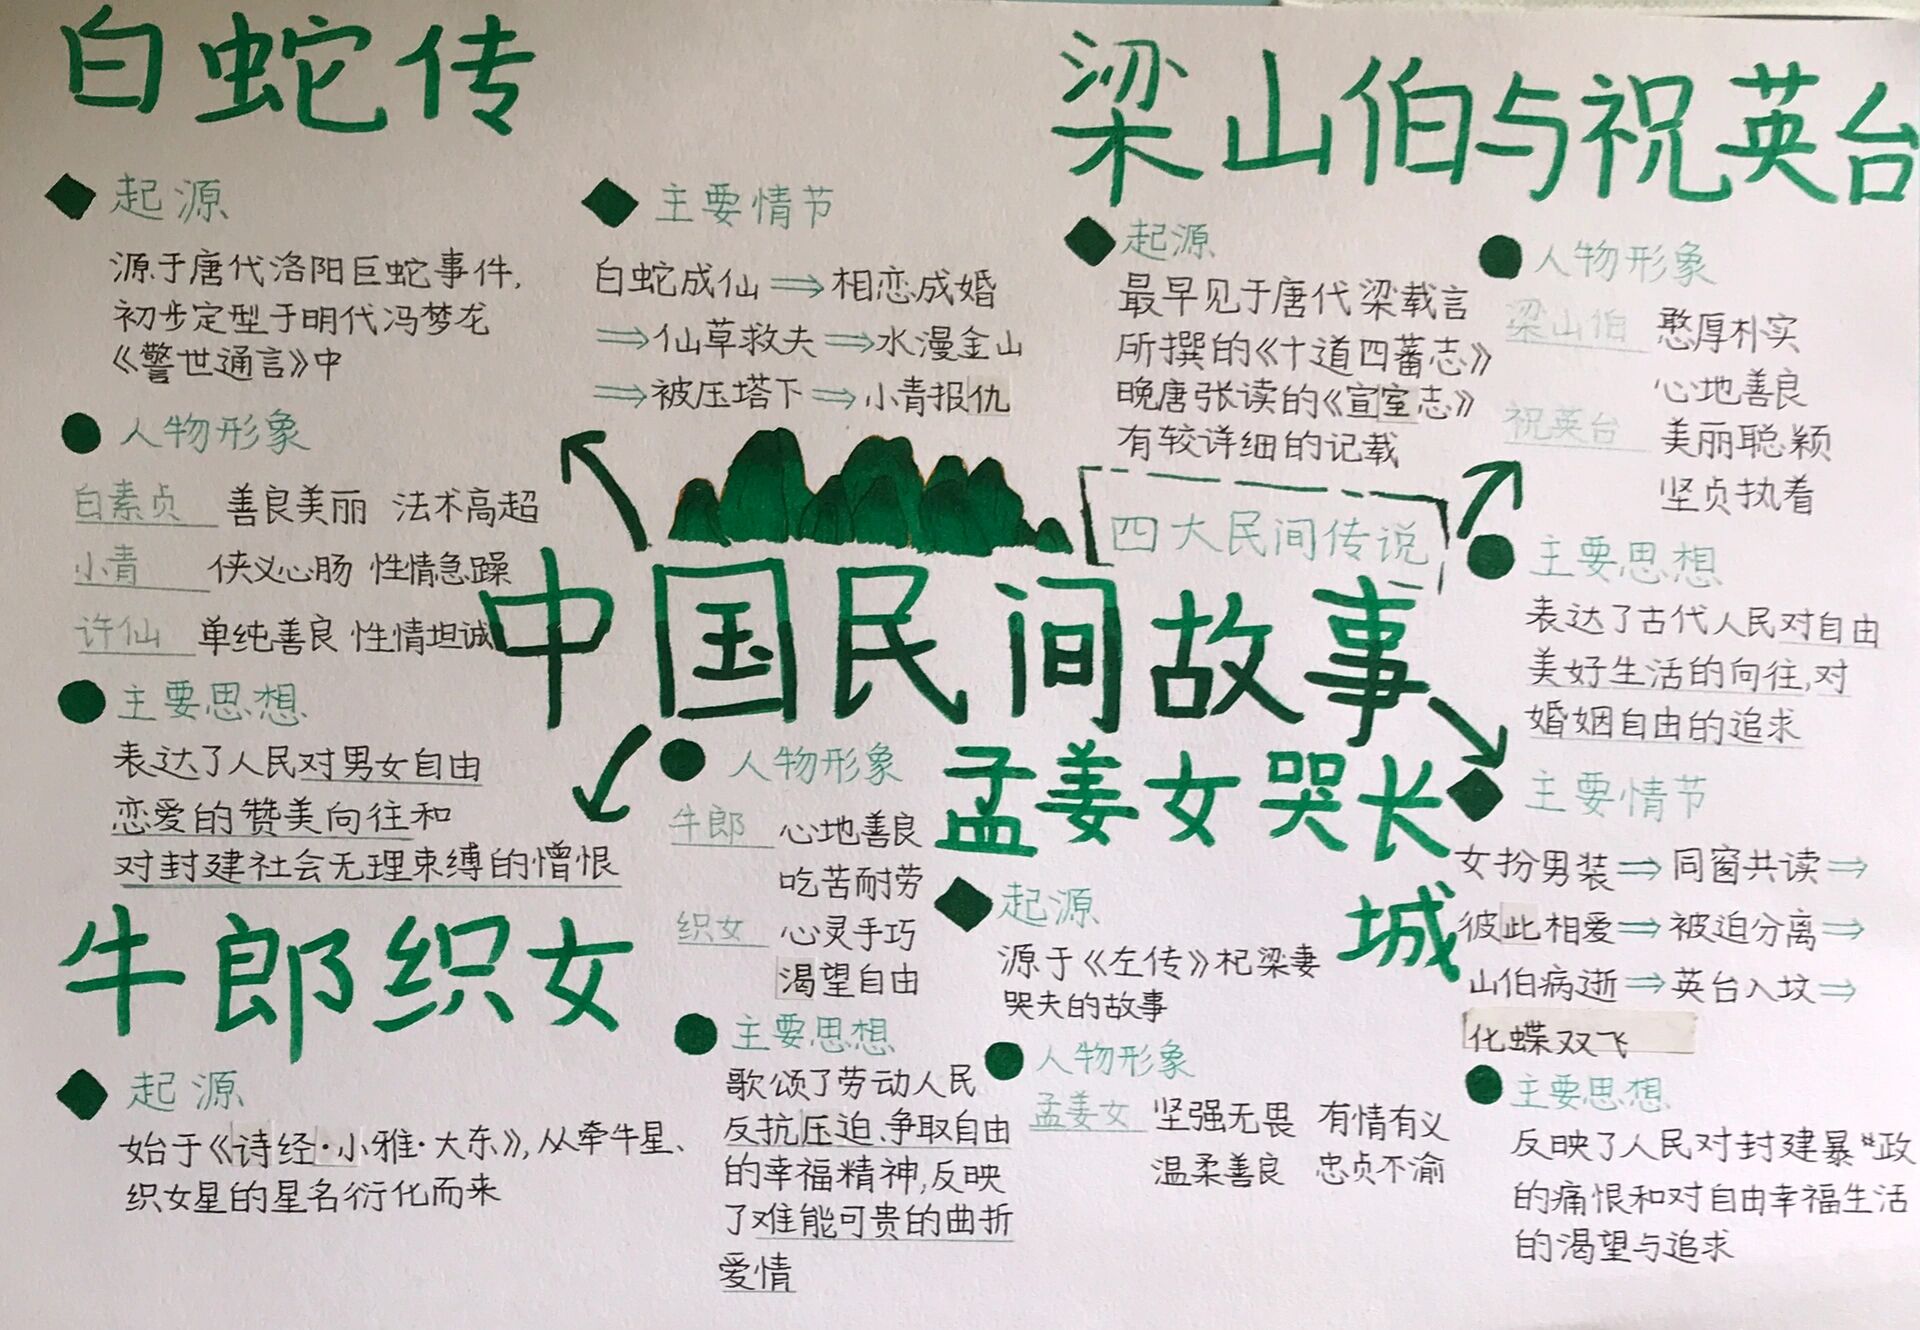 白蛇传
起源
源于唐代洛阳巨蛇事件,
初步定型于明代冯梦龙
《警世通言》中
人物形象
白素贞 善良美丽 法术高超
小青 侠义心肠 性情急躁
许仙 单纯善良 性情坦诚
主要思想
表达了人民对男女自由
恋爱的赞美向往和
对封建社会无理束缚的憎恨
主要情节
白蛇成仙⇒相恋成婚
⇒仙草救夫⇒水漫金山
⇒被压塔下⇒小青报仇
梁山伯与祝英台
起源
最早见于唐代梁载言
所撰的《十道四蕃志》
晚唐张读的《宣室志》
有较详细的记载
人物形象
梁山伯 憨厚朴实
心地善良
祝英台 美丽聪颖
坚贞执着
主要思想
表达了古代人民对自由
美好生活的向往,对
婚姻自由的追求
主要情节
女扮男装⇒同窗共读⇒
彼此相爱⇒被迫分离⇒
山伯病逝⇒英台入坟⇒
化蝶双飞
四大民间传说
中国民间故事
牛郎织女
起源
始于《诗经·小雅·大东》,从牵牛星、
织女星的星名衍化而来
人物形象
牛郎 心地善良
吃苦耐劳
织女 心灵手巧
渴望自由
主要思想
歌颂了劳动人民
反抗压迫、争取自由
的幸福精神,反映
了难能可贵的曲折
爱情
孟姜女哭长
城
起源
源于《左传》杞梁妻
哭夫的故事
人物形象
孟姜女 坚强无畏 有情有义
温柔善良 忠贞不渝
主要思想
反映了人民对封建暴政
的痛恨和对自由幸福生活
的渴望与追求